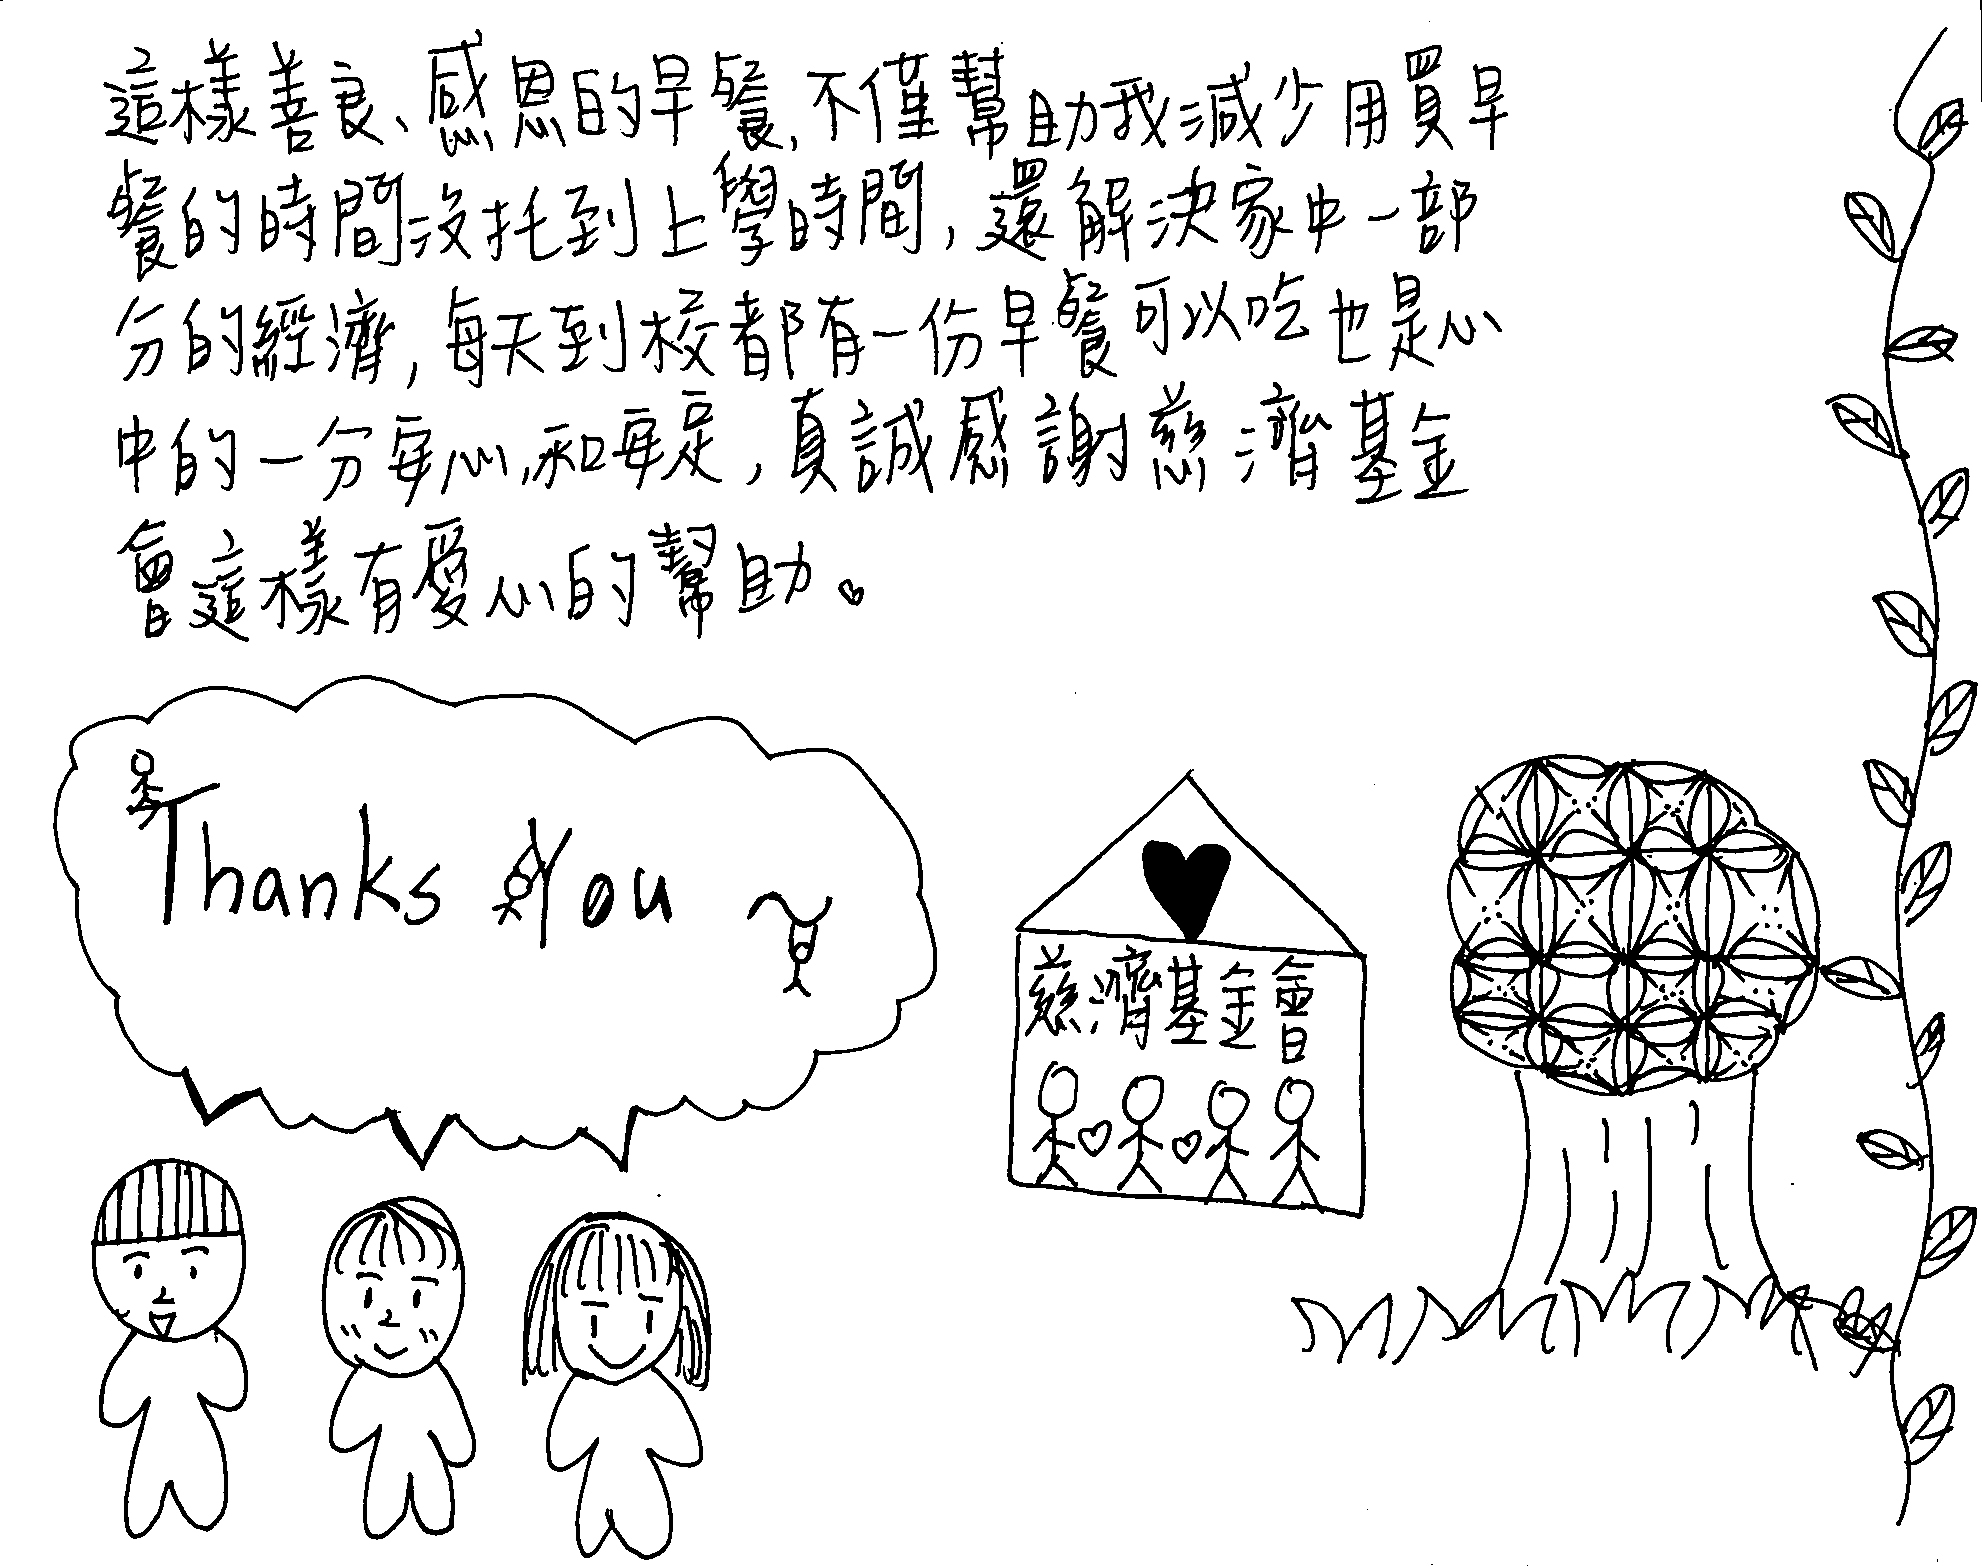 這樣善良、感恩的早餐,不僅幫助我減少用買早
餐的時間沒托到上學時間,還解決家中一部
分的經濟,每天到校都有一份早餐可以吃也是心
中的一分安心,和安定,真誠感謝慈濟基金
會這樣有愛心的幫助。
Thanks You
慈濟基金會